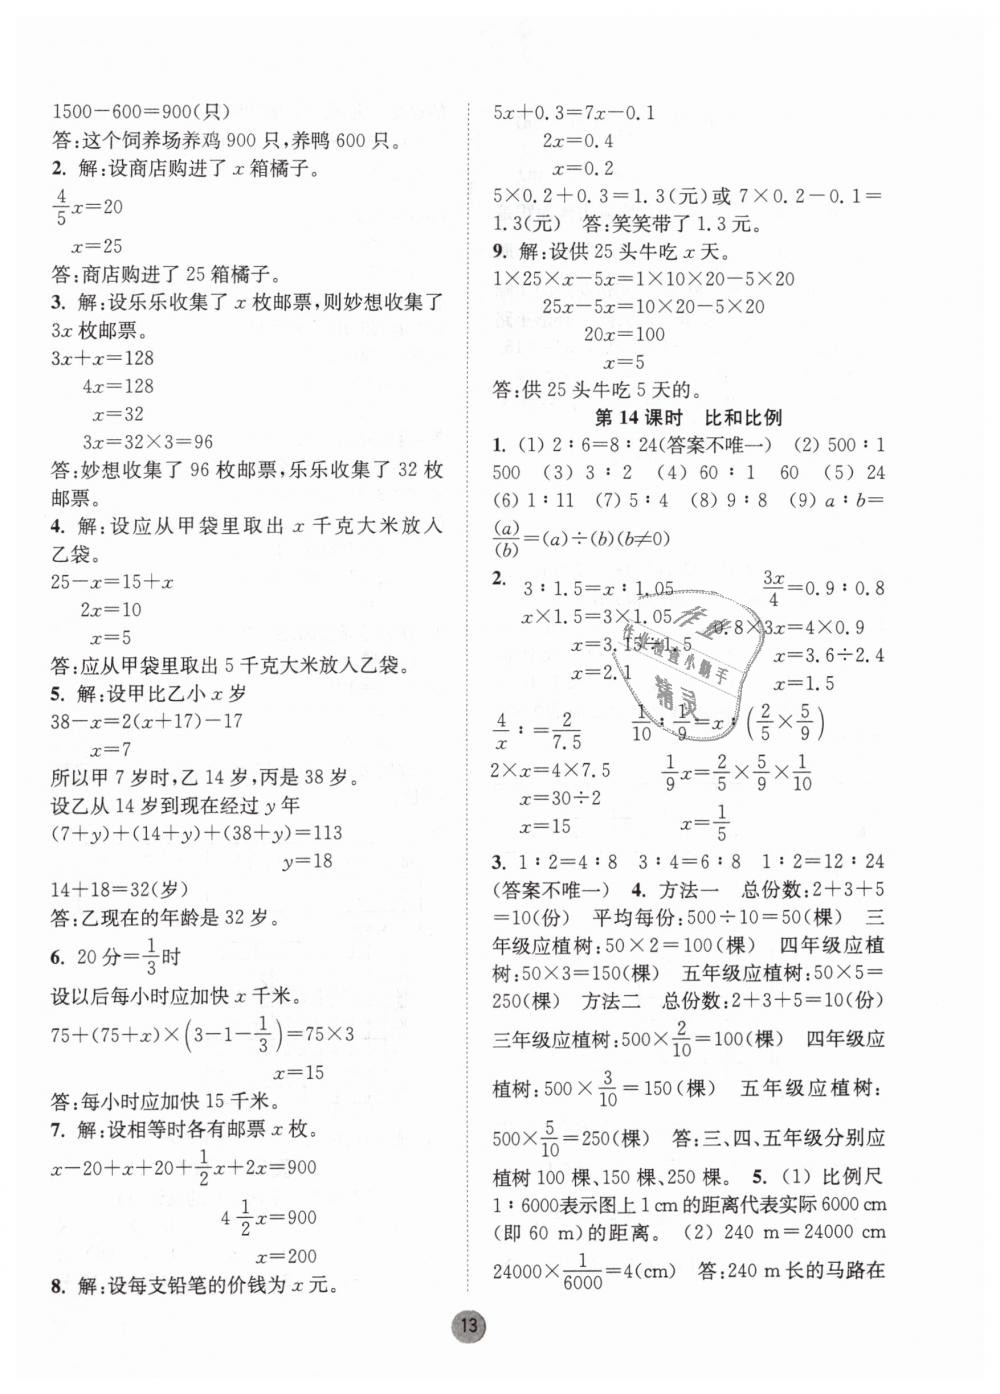 1500-600=900(只)
答:这个饲养场养鸡 900 只,养鸭 600 只。
2. 解:设商店购进了 x 箱橘子。
4/5x=20
x=25
答:商店购进了 25 箱橘子。
3. 解:设乐乐收集了 x 枚邮票,则妙想收集了
3x 枚邮票。
3x+x=128
4x=128
x=32
3x=32×3=96
答:妙想收集了 96 枚邮票,乐乐收集了 32 枚
邮票。
4. 解:设应从甲袋里取出 x 千克大米放入
乙袋。
25-x=15+x
2x=10
x=5
答:应从甲袋里取出 5 千克大米放入乙袋。
5. 解:设甲比乙小 x 岁
38-x=2(x+17)-17
x=7
所以甲 7 岁时,乙 14 岁,丙是 38 岁。
设乙从 14 岁到现在经过 y 年
(7+y)+(14+y)+(38+y)=113
y=18
14+18=32(岁)
答:乙现在的年龄是 32 岁。
6. 20 分=1/3时
设以后每小时应加快 x 千米。
75+(75+x)×(3-1-1/3)=75×3
x=15
答:每小时应加快 15 千米。
7. 解:设相等时各有邮票 x 枚。
x-20+x+20+1/2x+2x=900
4 1/2x=900
x=200
8. 解:设每支铅笔的价钱为 x 元。
5x+0.3=7x-0.1
2x=0.4
x=0.2
5×0.2+0.3=1.3(元)或 7×0.2-0.1=
1.3(元) 答:笑笑带了 1.3 元。
9. 解:设供 25 头牛吃 x 天。
1×25×x-5x=1×10×20-5×20
25x-5x=10×20-5×20
20x=100
x=5
答:供 25 头牛吃 5 天的。
第 14 课时 比和比例
1. (1) 2∶6=8∶24(答案不唯一) (2) 500∶1
500 (3) 3∶2 (4) 60∶1 60 (5) 24
(6) 1∶11 (7) 5∶4 (8) 9∶8 (9) a∶b=
(a)/(b)=(a)÷(b)(b≠0)
2. 3∶1.5=x∶1.05 3x/4=0.9∶0.8
x×1.5=3×1.05 0.8×3x=4×0.9
x=3.15÷1.5 x=3.6÷2.4
x=2.1 x=1.5
4/x∶=2/7.5 1/10∶1/9=x∶(2/5×5/9)
2×x=4×7.5 1/9x=2/5×5/9×1/10
x=30÷2
x=15 x=1/5
3. 1∶2=4∶8 3∶4=6∶8 1∶2=12∶24
(答案不唯一) 4. 方法一 总份数:2+3+5
=10(份) 平均每份:500÷10=50(棵) 三
年级应植树:50×2=100(棵) 四年级应植
树:50×3=150(棵) 五年级应植树:50×5=
250(棵) 方法二 总份数:2+3+5=10(份)
三年级应植树:500×2/10=100(棵) 四年级应
植树:500×3/10=150(棵) 五年级应植树:
500×5/10=250(棵) 答:三、四、五年级分别应
植树 100 棵、150 棵、250 棵。 5. (1) 比例尺
1∶6000表示图上 1 cm 的距离代表实际 6000 cm
(即 60 m)的距离。 (2) 240 m=24000 cm
24000×1/6000=4(cm) 答:240 m 长的马路在
作业
作业检查小助手
精灵
13